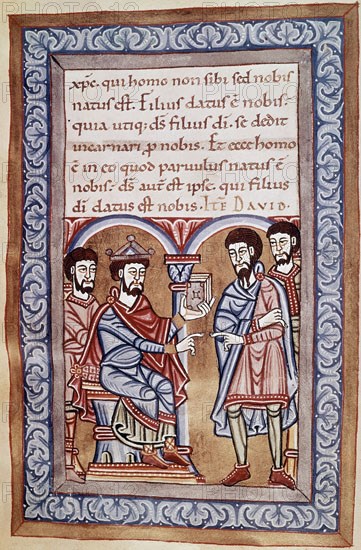 xp̄c. qui homo non sibi sed nobis
natus est. Filius datus ē nobis.
quia utiq; ds̄ filius di. se dedit
incarnari p̱ nobis. Et ecce homo
ē in eo quod paruulus natus ē
nobis. ds̄ aut̄ est ipse. qui filius
di datus est nobis. Itē DAVID.